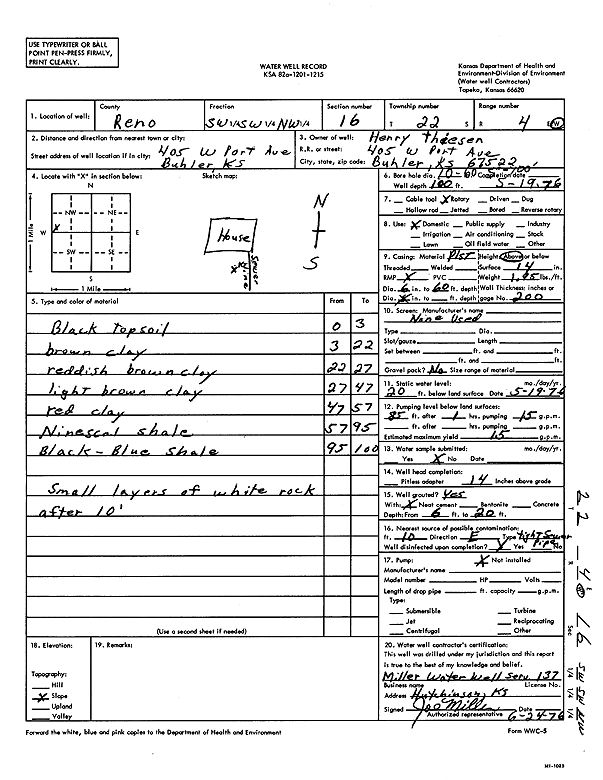 USE TYPEWRITER OR BALL
POINT PEN-PRESS FIRMLY,
PRINT CLEARLY.
WATER WELL RECORD
KSA 82a-1201-1215
Kansas Department of Health and
Environment-Division of Environment
(Water well Contractors)
Topeka, Kansas 66620
1. Location of well: County Reno Fraction SW 1/4 SW 1/4 NW 1/4 Section number 16 Township number T 22 S Range number R 4 E W
2. Distance and direction from nearest town or city:
Street address of well location if in city: 405 W Port Ave
Buhler, KS
3. Owner of well: Henry Thiesen
R.R. or street: 405 W Port Ave
City, state, zip code: Buhler, KS 67522
4. Locate with "X" in section below: Sketch map:
N
NW NE
W X E
SW SE
S
1 Mile
1 Mile
N
S
House
Sewer
line
5. Type and color of material From To
Black Topsoil 0 3
brown clay 3 22
reddish brown clay 22 27
light brown clay 27 47
red clay 47 57
Ninescal shale 57 95
Black-Blue shale 95 100
Small layers of white rock
after 10'
(Use a second sheet if needed)
6. Bore hole dia. 10-60 Completion date
Well depth 100 ft. 5-19-76
7. Cable tool X Rotary Driven Dug
Hollow rod Jetted Bored Reverse rotary
8. Use: X Domestic Public supply Industry
Irrigation Air conditioning Stock
Lawn Oil field water Other
9. Casing: Material Plst Height: Above or below
Threaded Welded Surface 14 in.
RMP X PVC Weight lbs./ft.
Dia. 6 in. to 60 ft. depth Wall Thickness: inches or
Dia. X in. to ft. depth gage No. 200
10. Screen: Manufacturer's name
None Used
Type Dia.
Slot/gauze Length
Set between ft. and ft.
ft. and ft.
Gravel pack? No Size range of material
11. Static water level: mo./day/yr.
20 ft. below land surface Date 5-19-76
12. Pumping level below land surfaces:
85 ft. after 1 hrs. pumping 15 g.p.m.
ft. after hrs. pumping g.p.m.
Estimated maximum yield 15 g.p.m.
13. Water sample submitted: mo./day/yr.
Yes X No Date
14. Well head completion:
Pitless adapter 14 Inches above grade
15. Well grouted? Yes
With: X Neat cement Bentonite Concrete
Depth: From 6 ft. to 20 ft.
16. Nearest source of possible contamination:
ft. 10 Direction E Type tight Sewer
Pipe
Well disinfected upon completion? X Yes No
17. Pump: X Not installed
Manufacturer's name
Model number HP Volts
Length of drop pipe ft. capacity g.p.m.
Type:
Submersible Turbine
Jet Reciprocating
Centrifugal Other
18. Elevation:
Topography:
Hill
X Slope
Upland
Valley
19. Remarks:
20. Water well contractor's certification:
This well was drilled under my jurisdiction and this report
is true to the best of my knowledge and belief.
Miller Water Well Serv. 137
Business name License No.
Address Hutchinson, KS
Signed Joe Miller Date 6-24-76
Authorized representative
T 22 - R 4 W Sec 16 SW SW NW
1/4 1/4 1/4
Forward the white, blue and pink copies to the Department of Health and Environment
Form WWC-5